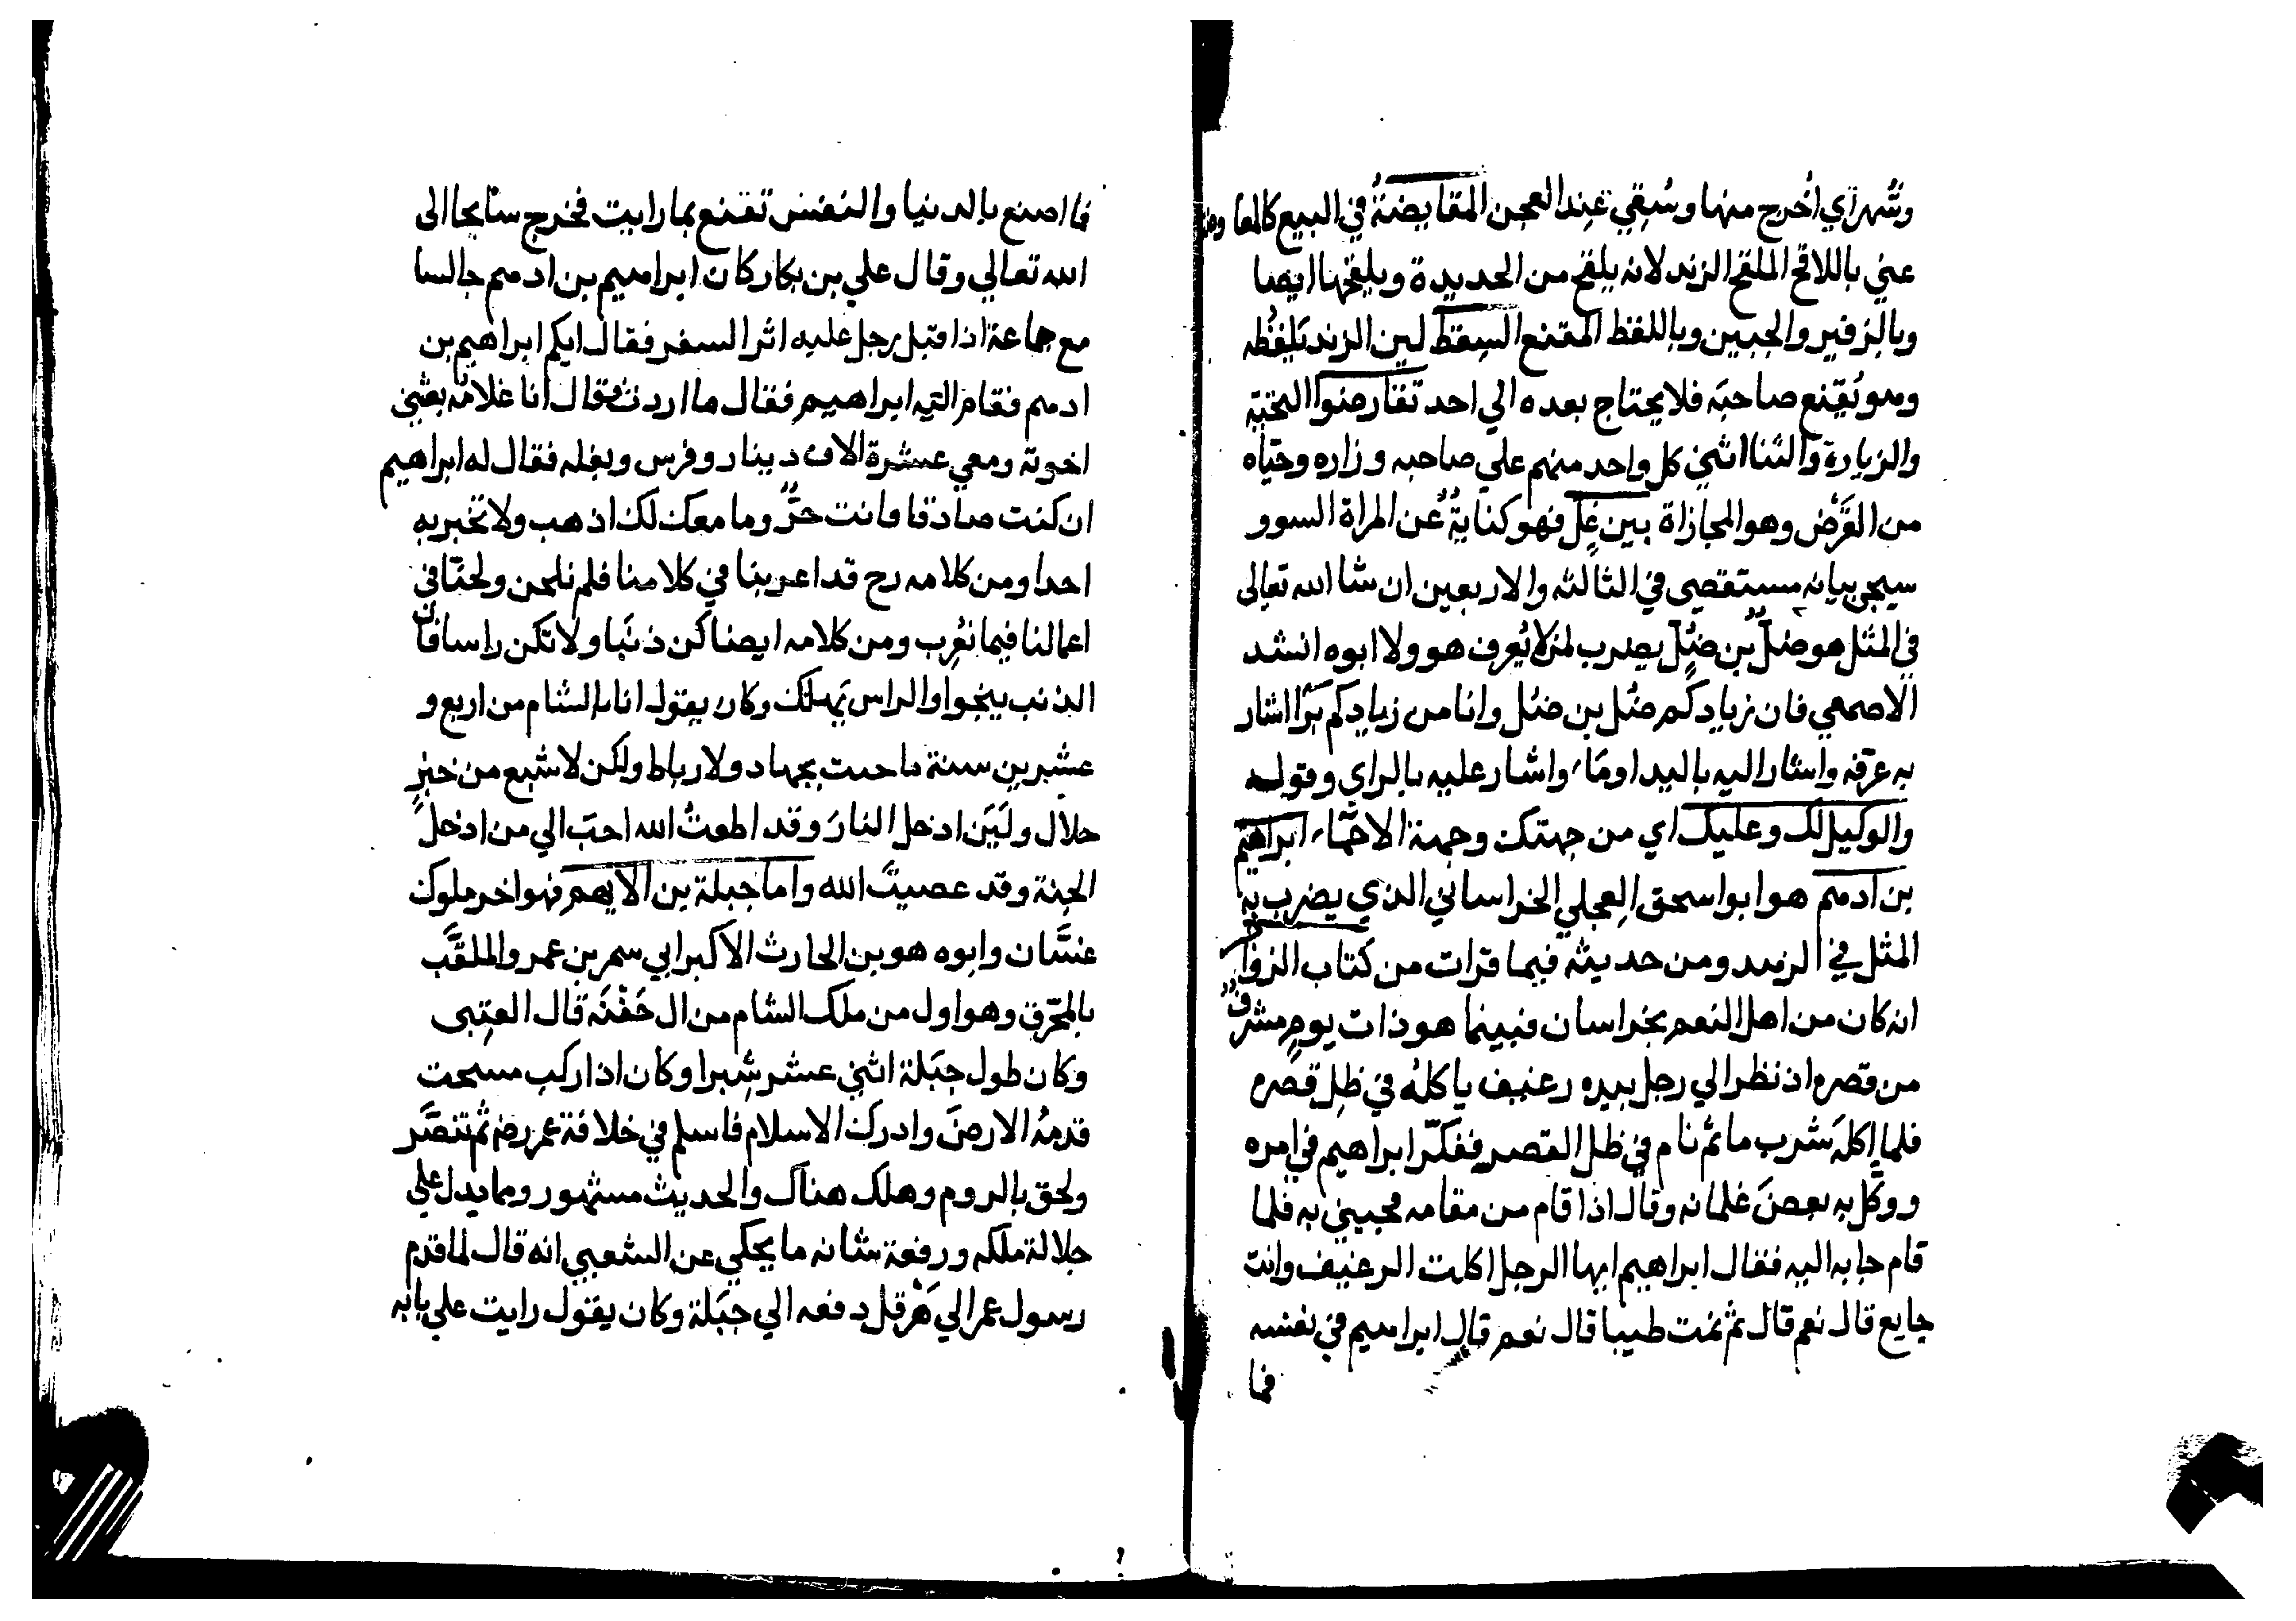 وشُهر اي اُخرج منها وسُقي عند العجن المقايضة في البيع كالمعاوضة
عني باللاقح الملقح الزند لانه يلقح من الحديدة ويلقحها ايضا
وبالزفير والجبين وباللفظ المقنع السقط لين الزند تلفظه
وهو يُقنع صاحبَه فلا يحتاج بعده الي احد تقارضوا التحية
والزيارة والثنا اثني كل واحد منهم علي صاحبه وزاره وحيّاه
من القَرْض وهو المجازاة بين غلّ فهو كنايةٌ عن المراة السوو
سيجي بيانه مستقصي في الثالثه والاربعين ان شا الله تعالى
في المثل هو ضلّ بن ضُلّ يضرب لمن لا يُعرف هو ولا ابوه انشد
الاصمعي فان زيادكم ضُل بن ضُل وانا من زيادكم بَرَا اشار
به عرّفه واشار اليه باليد اومَا، واشار عليه بالراي وقوله
والوكيل لك وعليك اي من جهتك وجهة الاحمّا، ابراهيم
بن ادهم هو ابو اسحق العجلي الخراساني الذي يضرب به
المثل في الزهد ومن حديثه فيما قرات من كتاب الزوا
انه كان من اهل النعم بخراسان فبينما هو ذات يوم مشرفٌ
من قصره اذ نظر الي رجل بيده رغيف ياكلُه في ظل قصره
فلما اكلَه شرب ما ثم نام في ظل القصر ففكّر ابراهيم في امره
ووكّل به بعضَ غلمانه وقال اذا قام من مقامه فجيئني به فلما
قام جا به اليه فقال ابراهيم ايها الرجل اكلت الرغيف وانت
جايع قال نعم قال ثم نمت طيبا قال نعم قال ابراهيم في نفسه
فما
فما اصنع بالدنيا والنفس تقنع بما رايت فخرج سايحا الى
الله تعالي وقال علي بن بكار كان ابراهيم بن ادهم جالسا
مع جماعة اذا قبل رجل عليه اثر السفر فقال ايكم ابراهيم بن
ادهم فقام اليه ابراهيم فقال ما اردت فقال انا غلامك بعثني
اخوته ومعي عشرة الاف دينار وفرس وبغله فقال له ابراهيم
ان كنت صادقا فانت حرٌّ وما معك لك اذهب ولا تخبر به
احدا ومن كلامه رح قد اعربنا في كلامنا فلم نلحن ولحنّا في
اعمالنا فيما نُعرب ومن كلامه ايضا كن ذَنَبا ولا تكن راسا فان
الذنب ينجوا والراس يَهلك وكان يقول انا بالشام من اربع و
عشرين سنة ما جيت بجهاد ولا رباط ولكن لاشبع من خبزٍ
حلال ولَيَن ادخل النارَ وقد اطعتُ الله احبّ الي من ادخل
الجنة وقد عصيتُ الله واما جبلة بن الايهم فهو اخر ملوك
غسّان وابوه هو بن الحارث الاكبر ابي سمر بن عمر والملقّب
بالمحرّق وهو اول من ملك الشام من ال جَفْنَه قال العتبى
وكان طول جَبَلة اثني عشر شبرا وكان اذا ركب مسحت
قدمُه الارضَ وادرك الاسلام فاسلم في خلافة عمر رضه ثم تنصَّر
ولحق بالروم وهلك هناك والحديث مشهور ومما يدل علي
جلالة ملكه ورفعة شانه ما يحكي عن الشعبي انه قال لما قدم
رسول عمر الي هِرَقل دفعه الي جَبَلة وكان يقول رايت علي بابه